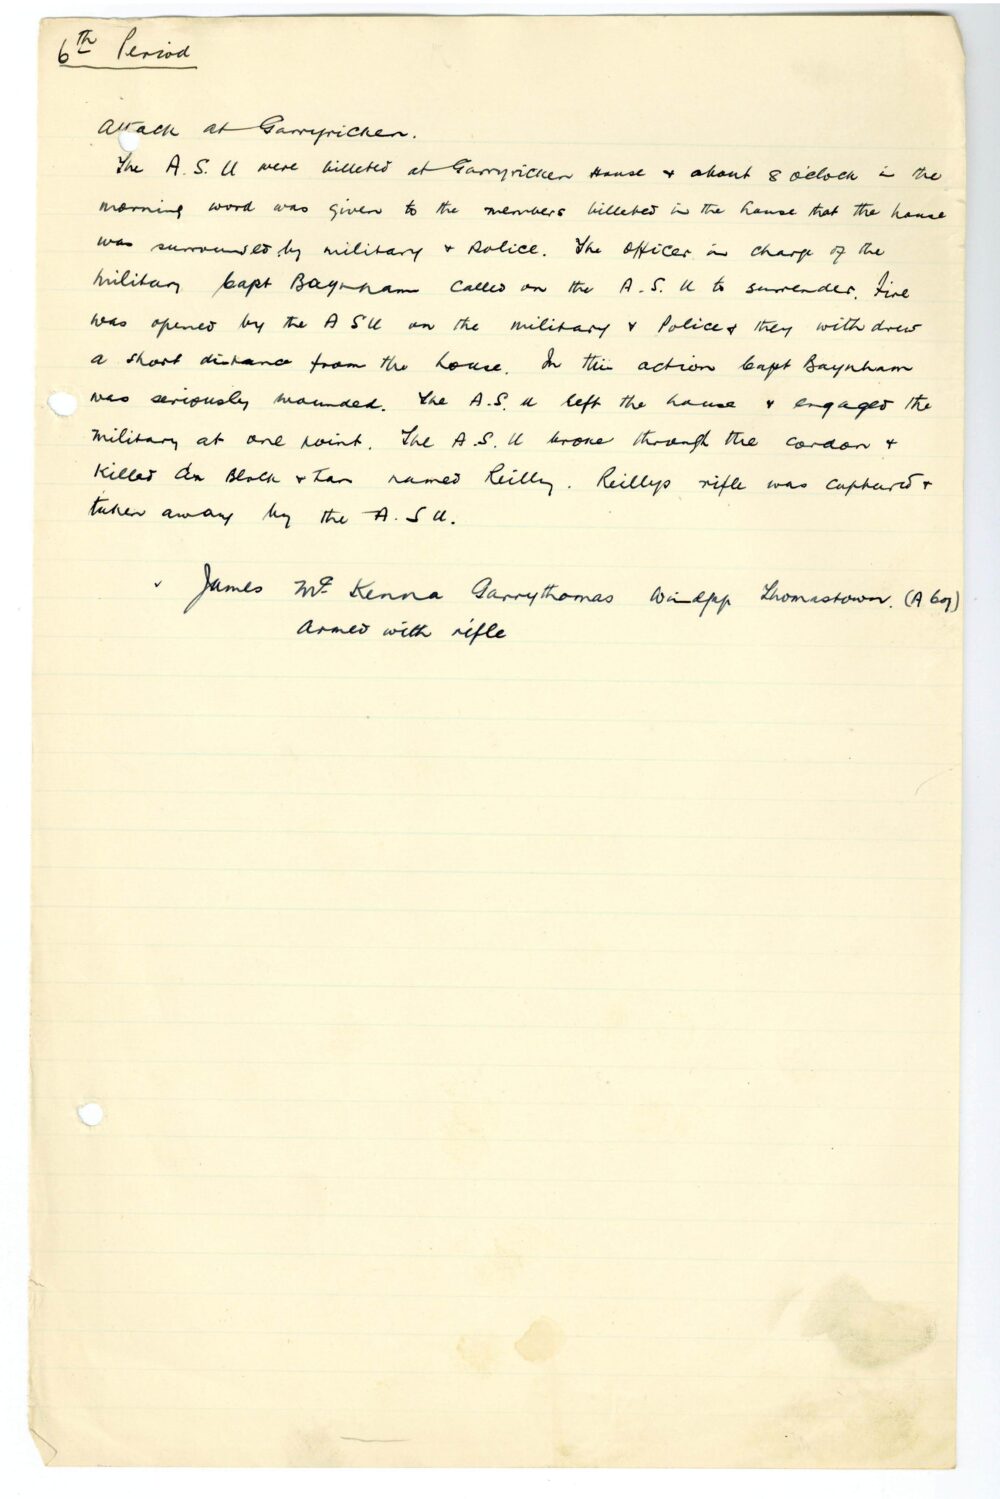 6th Period
Attack at Garryricken.
The A.S.U were billeted at Garryricken House & about 8 o'clock in the
morning word was given to the members billeted in the house that the house
was surrounded by military & Police. The Officer in charge of the
military Capt Baynham called on the A.S.U to surrender. Fire
was opened by the A S U on the military & Police & they withdrew
a short distance from the house. In this action Capt Baynham
was seriously wounded. The A.S.U left the house & engaged the
military at one point. The A.S.U broke through the cordon &
killed a Black & Tan named Reilly. Reillys rifle was captured &
taken away by the A.S.U.
James McKenna Garrythomas Windgap Thomastown. (A Coy)
Armed with rifle